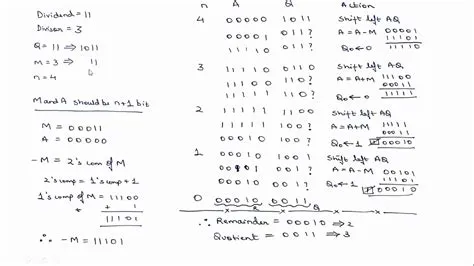 Dividend = 11
Divisor = 3
Q = 11 ⇒ 1011
M = 3 ⇒ 11
n = 4
M and A should be n+1 bit
M = 00011
A = 00000
-M = 2's com of M
2's comp = 1's comp + 1
1's comp of M = 11100
+ 1
11101
∴ -M = 11101
n A Q Action
4 00000 1011 Shift left AQ
00001 011? A = A-M 00001
11101
11110 0110 Q₀ ← 0 11110
3 11110 0110 Shift left AQ
11100 110? A = A+M 11100
00011
11111 1100 Q₀ ← 0 11111
2 11111 1100 Shift left AQ
11111 100? A = A+M 11111
00011
00010 1001 Q₀ ← 1 00010
1 00010 1001 Shift left AQ
00101 001? A = A-M 00101
11101
00010 0011 Q₀ ← 1 00010
0 00010 0011
R Q
∴ Remainder = 00010 ⇒ 2
Quotient = 0011 ⇒ 3